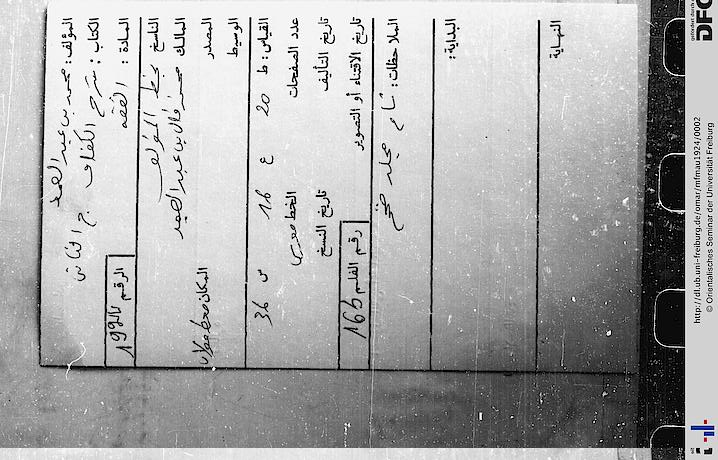 المؤلف: محمد بن عبد الصمد
الكتاب: شرح الكفاف ج الثاني
المادة: الفقه
الرقم 1924
الناسخ بخط المؤلف
المالك محمد فال بن عبد الصمد
المصدر
المكان
الوسيط
القياس: ط 20 ع 16 س 36
عدد الصفحات
الخط
تاريخ التأليف
تاريخ النسخ
تاريخ الاقتناء أو التصوير
رقم الفلم 165
الملاحظات: تام مجلد ضخم
البداية:
النهاية
http://dl.ub.uni-freiburg.de/omar/mfmau1924/0002
© Orientalisches Seminar der Universität Freiburg
gefördert durch
DFG